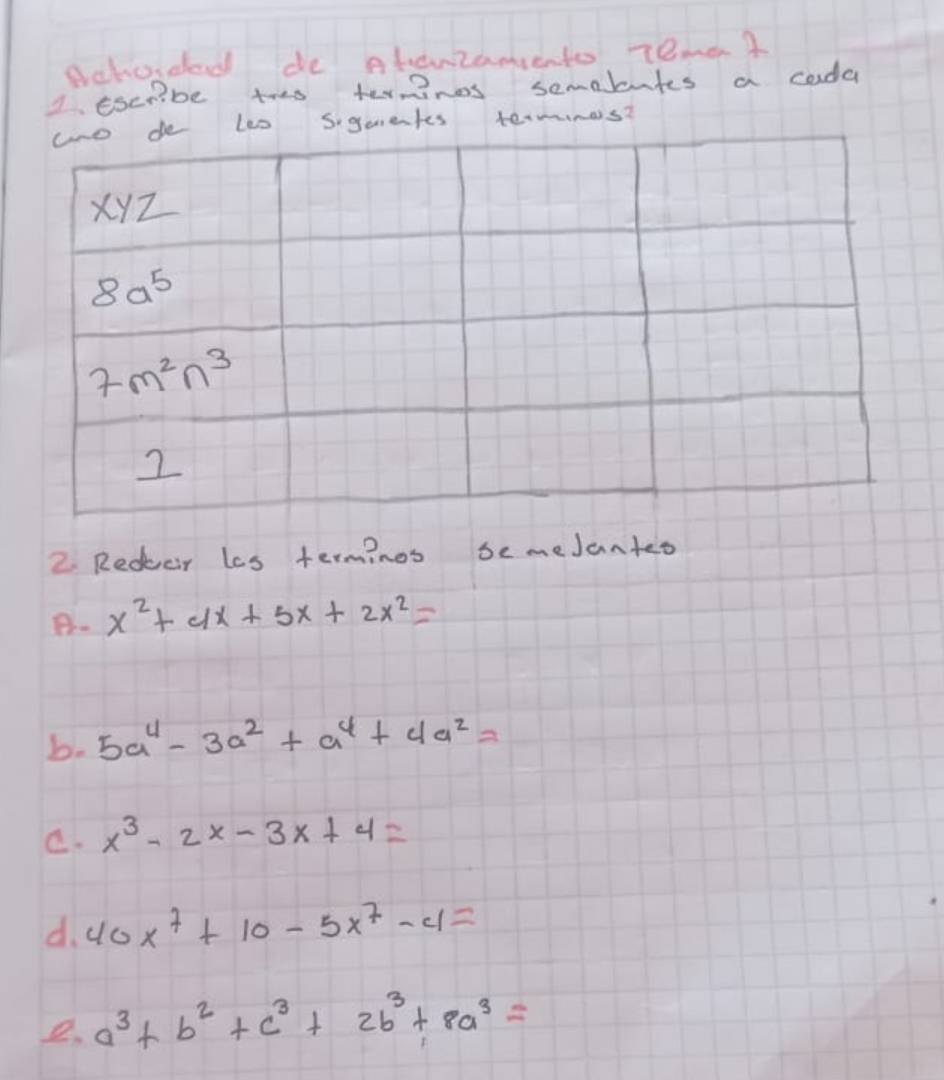 Actividad de Afianzamiento Tema 7
1. Escribe tres terminos semejantes a cada
uno de los siguientes terminos?
XYZ
8a⁵
7m²n³
1
2. Reducir los terminos semejantes
A. x² + 4x + 5x + 2x² =
b. 5a⁴ - 3a² + a⁴ + 4a² =
c. x³ - 2x - 3x + 4 =
d. 40x⁷ + 10 - 5x⁷ - 4 =
e. a³ + b² + c³ + 2b³ + 8a³ =